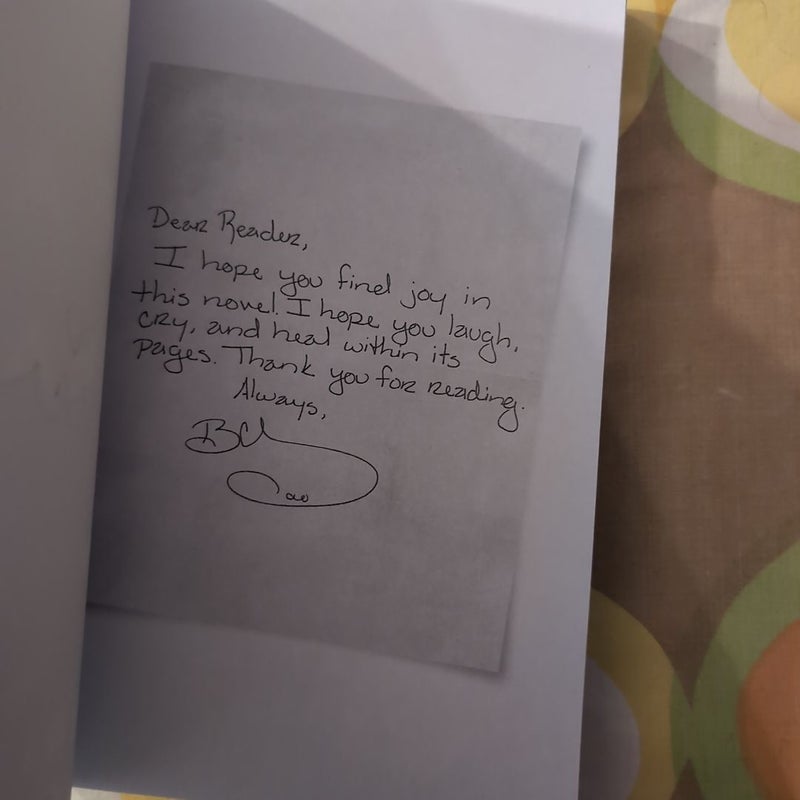 Dear Reader,
I hope you find joy in
this novel. I hope you laugh,
cry, and heal within its
pages. Thank you for reading.
Always,